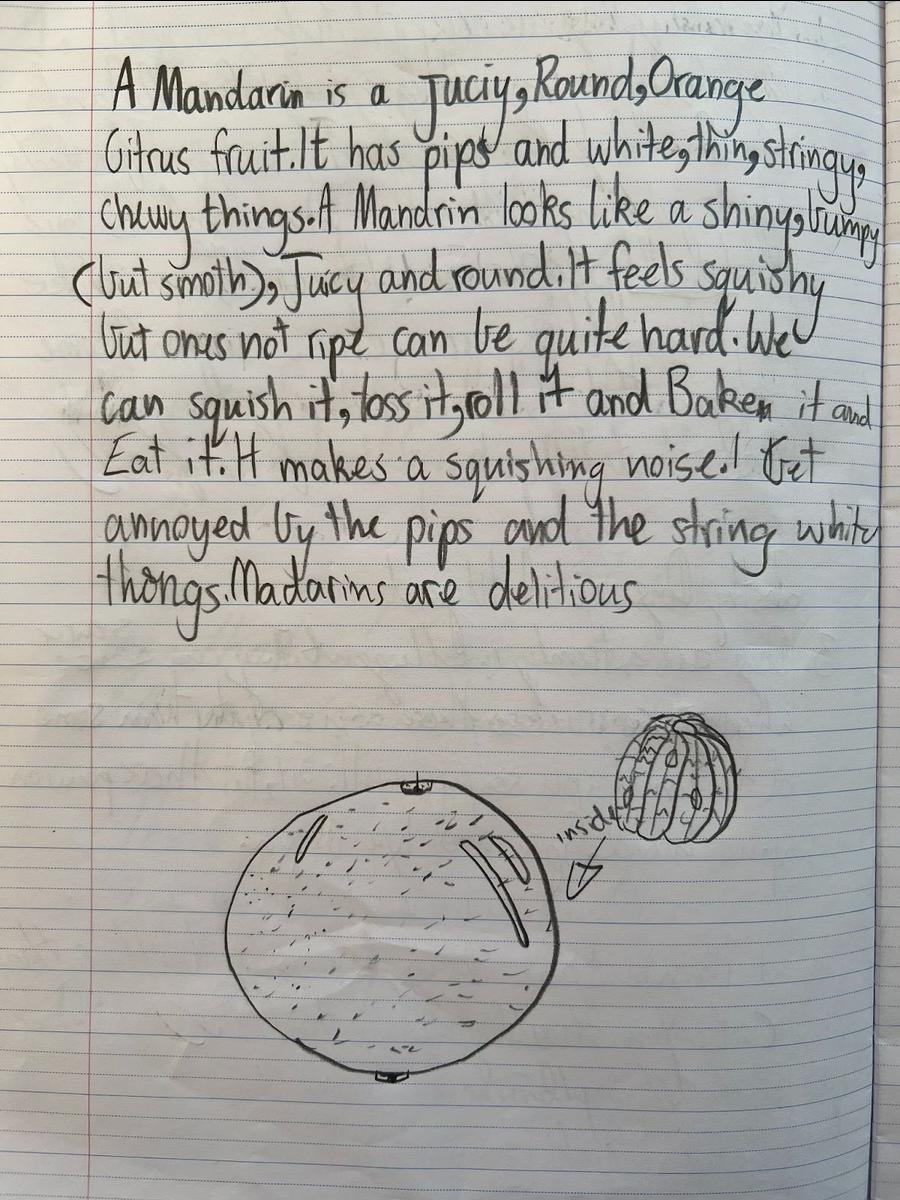 A Mandarin is a Juciy, Round, Orange
Citrus fruit. It has pips and white, thin, stringy,
chewy things. A Mandrin looks like a shiny, bumpy
(but smoth), Juicy and round. It feels squishy
but ones not ripe can be quite hard. We
can squish it, toss it, roll it and Baken it and
Eat it. It makes a squishing noise. I Get
annoyed by the pips and the string white
thongs. Madarins are delitious
inside